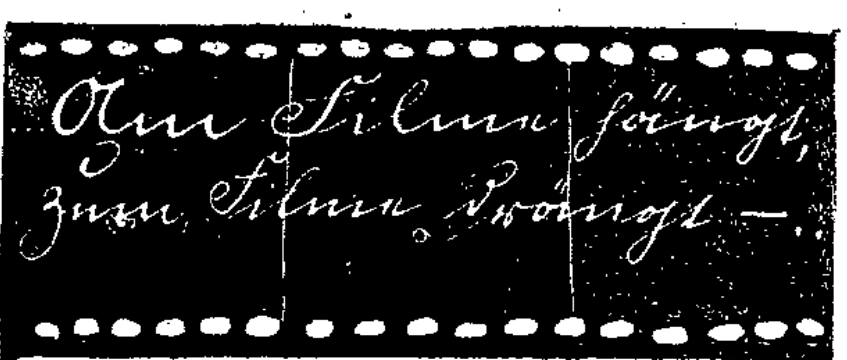 Am Filme hängt,
zum Filme drängt —